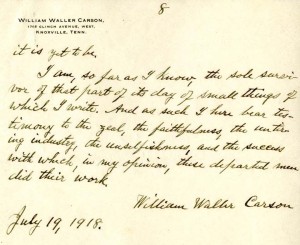 8
WILLIAM WALLER CARSON,
1705 CLINCH AVENUE, WEST,
KNOXVILLE, TENN.
it is yet to be.
I am, so far as I know the sole survi-
vor of that part of its day of small things of
which I write. And as such I here bear tes-
timony to the zeal, the faithfulness, the untir-
ing industry, the unselfishness, and the success
with which, in my opinion, these departed men
did their work.
William Waller Carson
July 19, 1918.